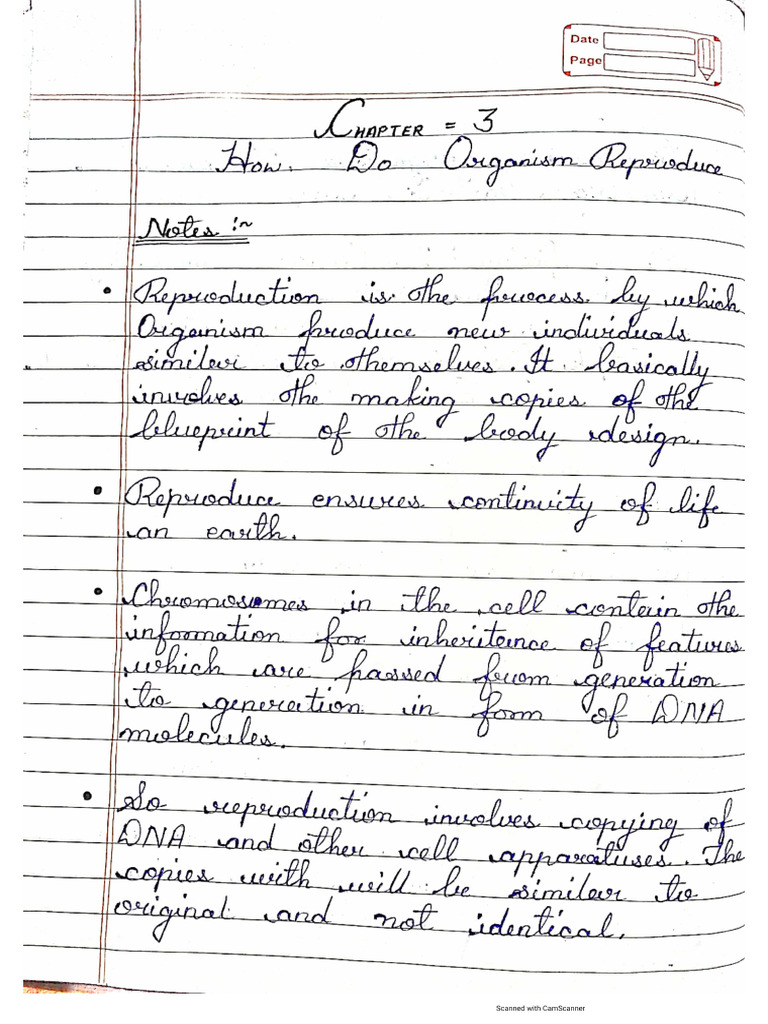 Date
Page
CHAPTER = 3
How. Do Organism Reproduce
Notes :~
• Reproduction is the process by which
Organism produce new individuals
similar to themselves. It basically
involves the making copies of the
blueprint of the body design.
• Reproduce ensures continuity of life
an earth.
• Chromosomes in the cell contain the
information for inheritance of features
which are passed from generation
to generation in form of DNA
molecules.
• So reproduction involves copying of
DNA and other cell apparatuses. The
copies with will be similar to
original and not identical.
Scanned with CamScanner